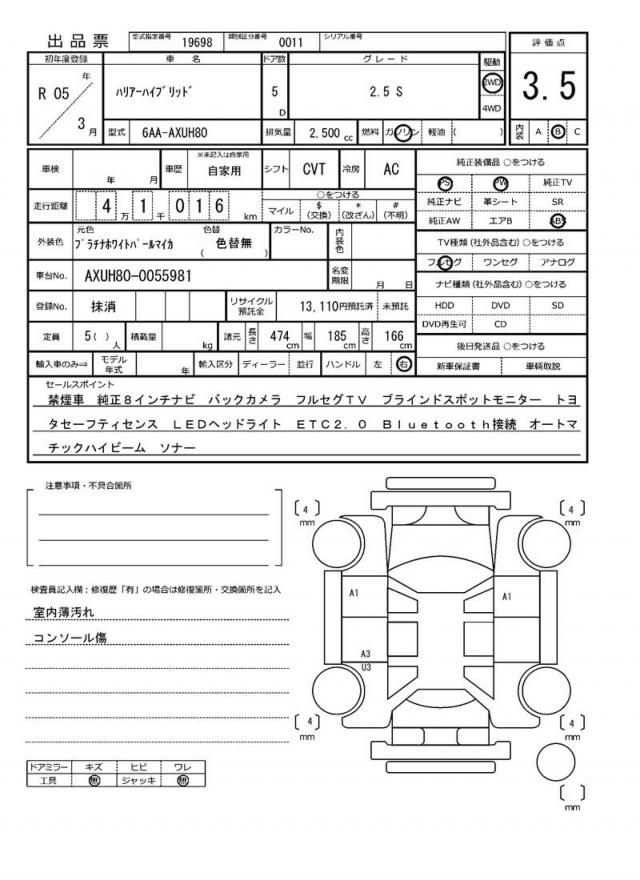 出品票 型式指定番号 19698 類別区分番号 0011 シリアル番号
評価点
3.5
内装 A B C
初年度登録 車名 ドア数 グレード 駆動
R 05 年 3 月
ハリアーハイブリッド 5 D 2.5 S 2WD 4WD
型式 6AA-AXUH80 排気量 2,500 cc 燃料 ガソリン 軽油 ( )
車検 年 月 車歴 ※未記入は自家用 自家用 シフト CVT 冷房 AC
走行距離 4万1千016 km ○をつける マイル $(交換) *(改ざん) #(不明)
外装色 元色 プラチナホワイトパールマイカ 色替 ( 色替無 ) カラーNo. 内装色
車台No. AXUH80-0055981 名変期限 月 日
登録No. 抹消 リサイクル預託金 13,110円預託済 未預託
定員 5( )人 積載量 kg 諸元 長さ 474 cm 幅 185 cm 高さ 166 cm
輸入車のみ⇒ モデル年式 年 輸入区分 ディーラー 並行 ハンドル 左 右
純正装備品 ○をつける
PS PW 純正TV
純正ナビ 革シート SR
純正AW エアB ABS
TV種類(社外品含む) ○をつける
フルセグ ワンセグ アナログ
ナビ種類(社外品含む) ○をつける
HDD DVD SD
DVD再生可 CD
後日発送品 ○をつける
新車保証書 車輌取説
セールスポイント
禁煙車 純正8インチナビ バックカメラ フルセグTV ブラインドスポットモニター トヨ
タセーフティセンス LEDヘッドライト ETC2.0 Bluetooth接続 オートマ
チックハイビーム ソナー
注意事項・不具合箇所
検査員記入欄:修復歴「有」の場合は修復箇所・交換箇所を記入
室内薄汚れ
コンソール傷
ドアミラー キズ ヒビ ワレ
工具 無 ジャッキ 無
4 mm
4 mm
A1
A1
A3
U3
4 mm
4 mm
mm